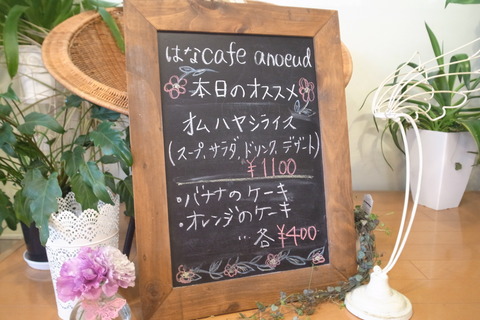 はなcafe anoeud
本日のオススメ
オムハヤシライス
(スープ、サラダ、ドリンク、デザート)
¥1100
・バナナのケーキ
・オレンジのケーキ
…各¥400